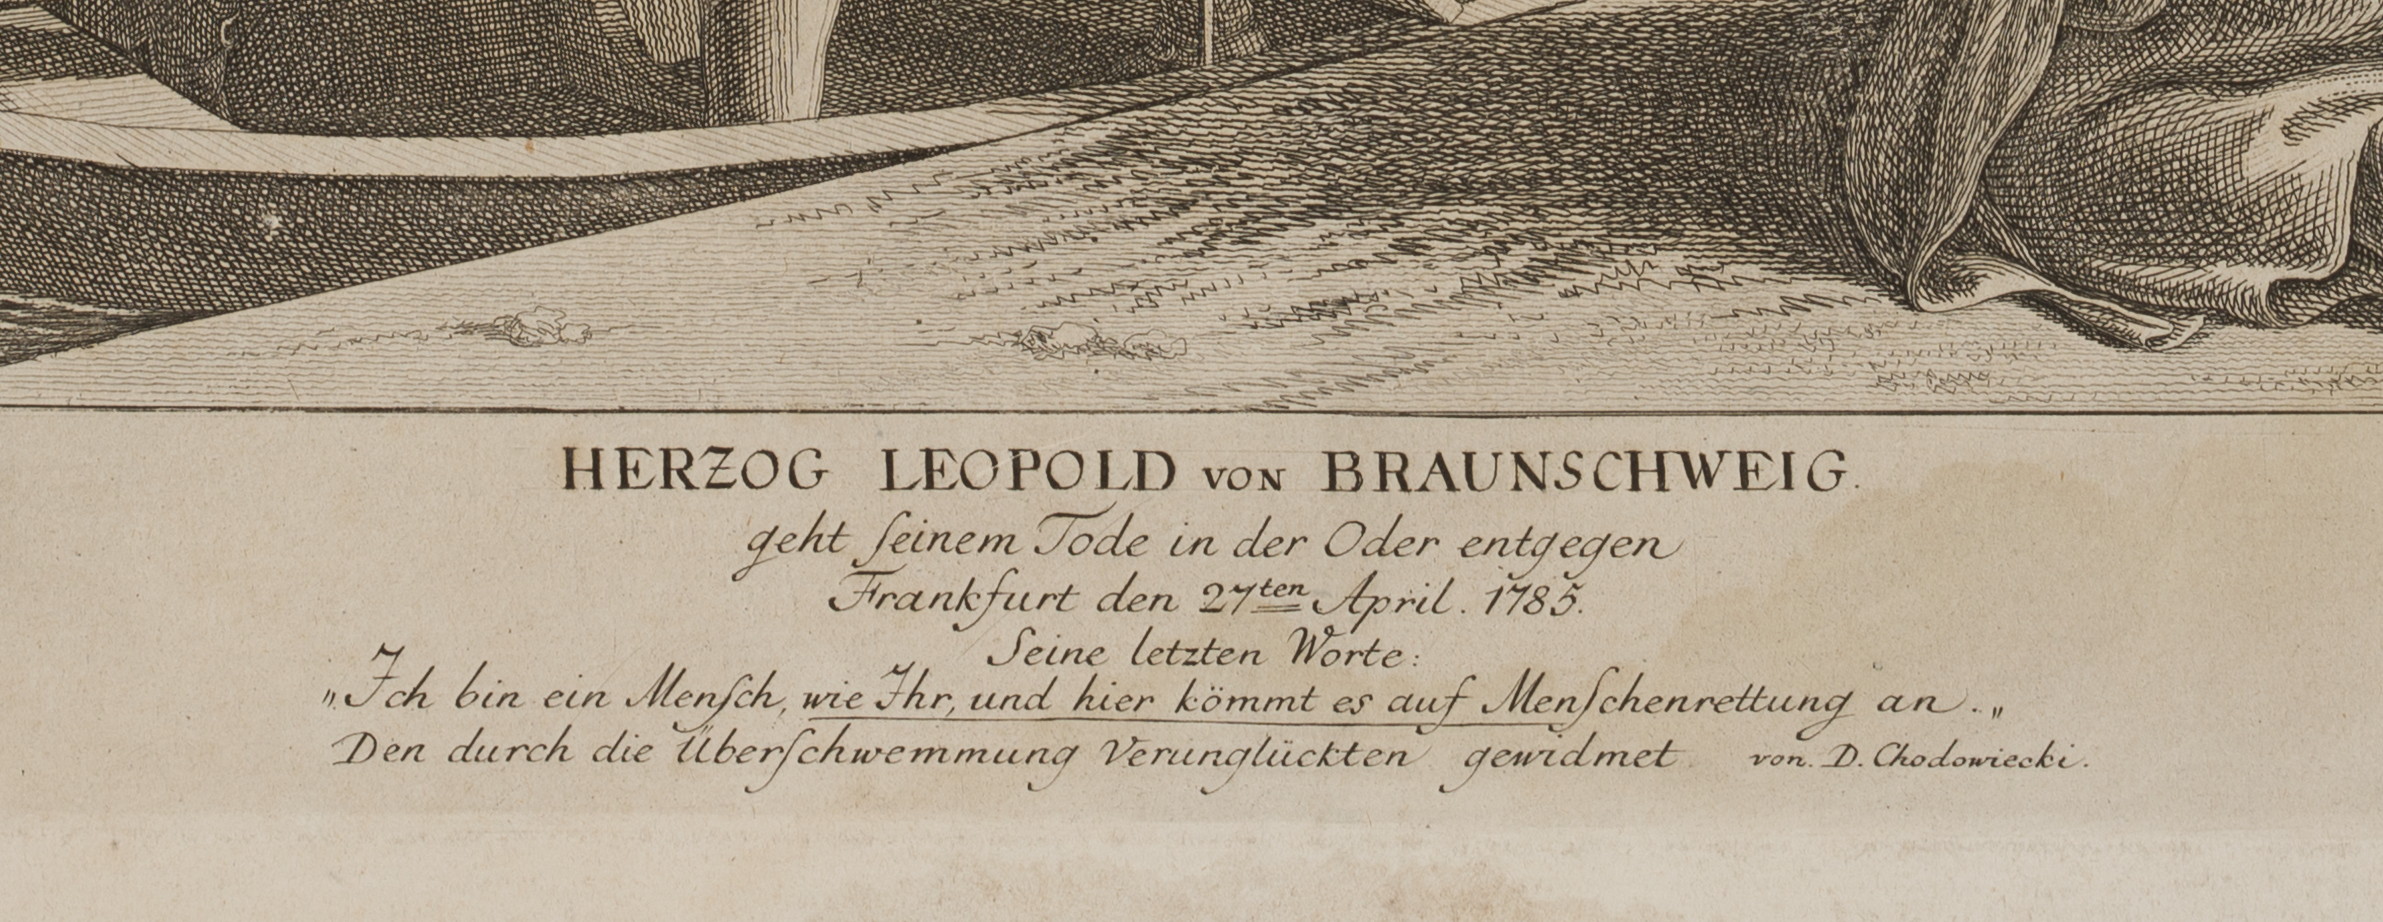 HERZOG LEOPOLD VON BRAUNSCHWEIG.
geht ſeinem Tode in der Oder entgegen
Frankfurt den 27ten April. 1785.
Seine letzten Worte:
„Ich bin ein Menſch, wie Ihr, und hier kömmt es auf Menſchenrettung an.„
Den durch die Überſchwemmung Verunglückten gewidmet von. D. Chodowiecki.